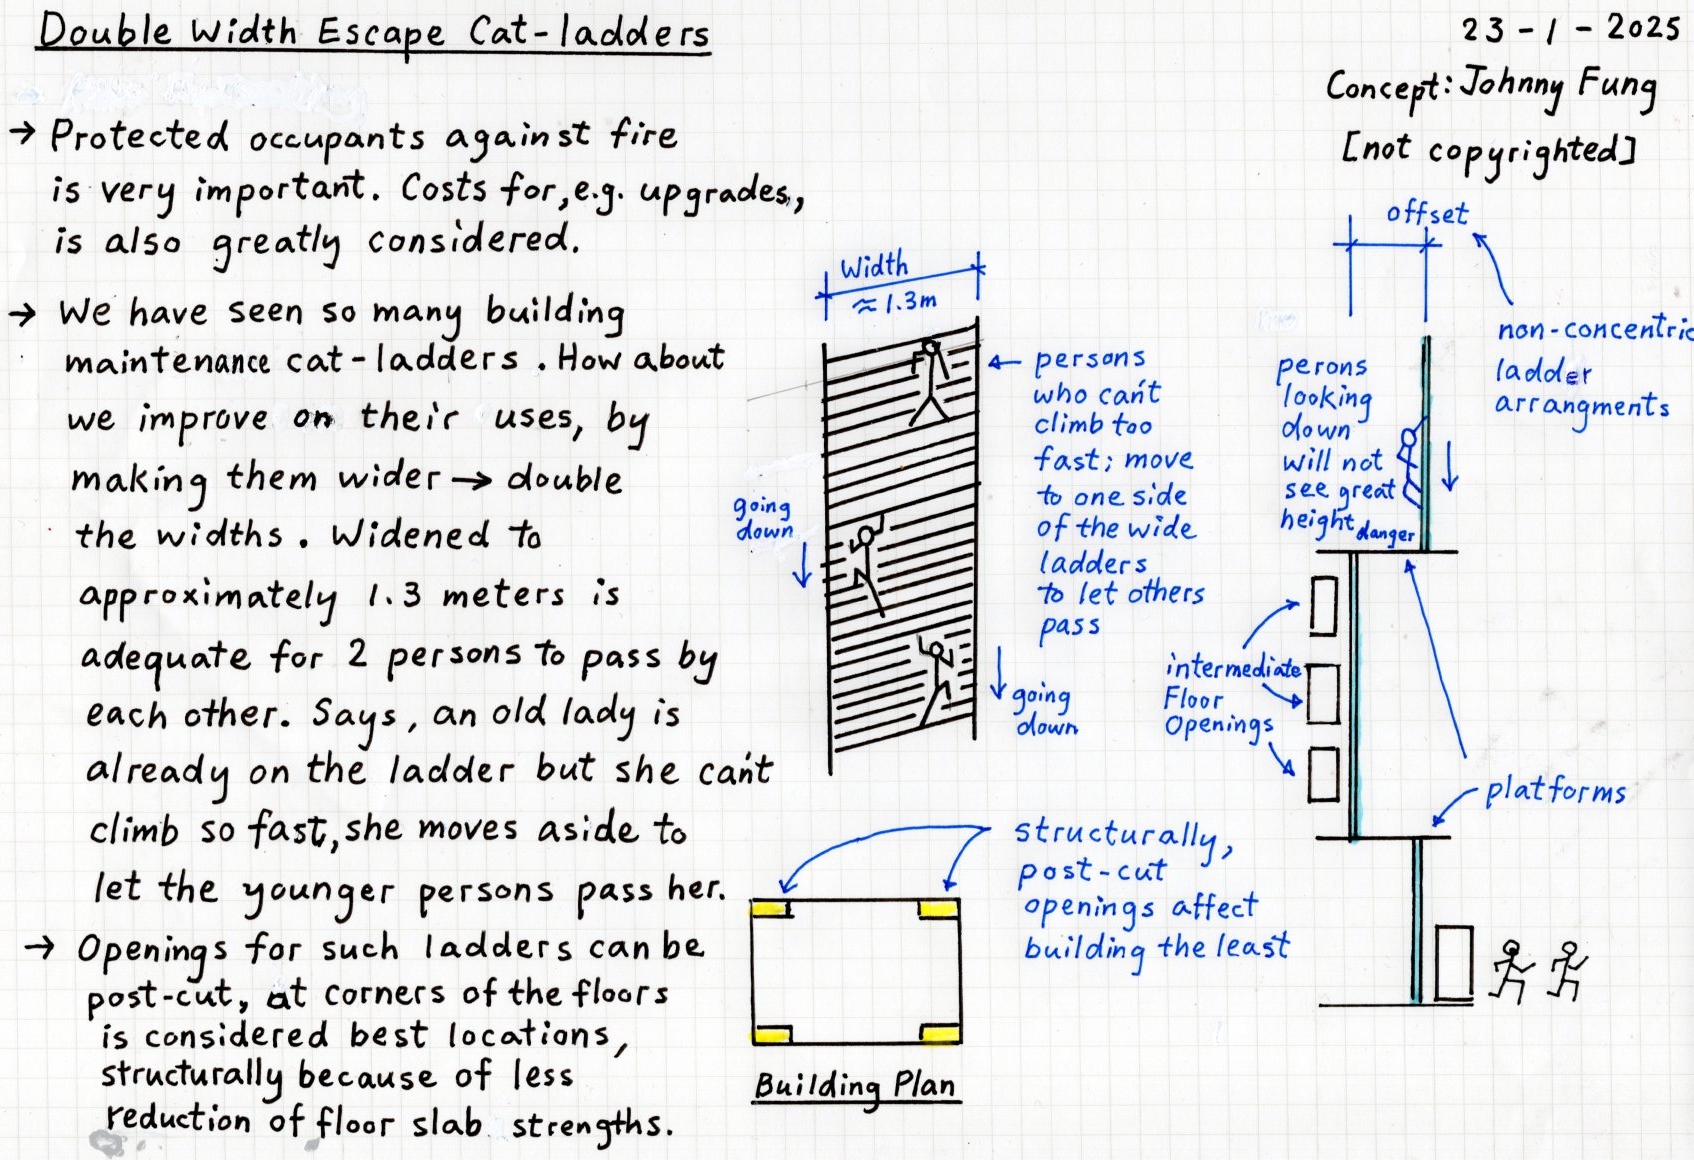 Double Width Escape Cat-ladders
23-1-2025
Concept: Johnny Fung
[not copyrighted]
→ Protected occupants against fire
is very important. Costs for, e.g. upgrades,
is also greatly considered.
→ We have seen so many building
maintenance cat-ladders. How about
we improve on their uses, by
making them wider → double
the widths. Widened to
approximately 1.3 meters is
adequate for 2 persons to pass by
each other. Says, an old lady is
already on the ladder but she can't
climb so fast, she moves aside to
let the younger persons pass her.
→ Openings for such ladders can be
post-cut, at corners of the floors
is considered best locations,
structurally because of less
reduction of floor slab strengths.
Width
≈ 1.3m
going
down
persons
who can't
climb too
fast; move
to one side
of the wide
ladders
to let others
pass
going
down
structurally,
post-cut
openings affect
building the least
Building Plan
offset
non-concentric
ladder
arrangments
perons
looking
down
will not
see great
height danger
intermediate
Floor
Openings
platforms